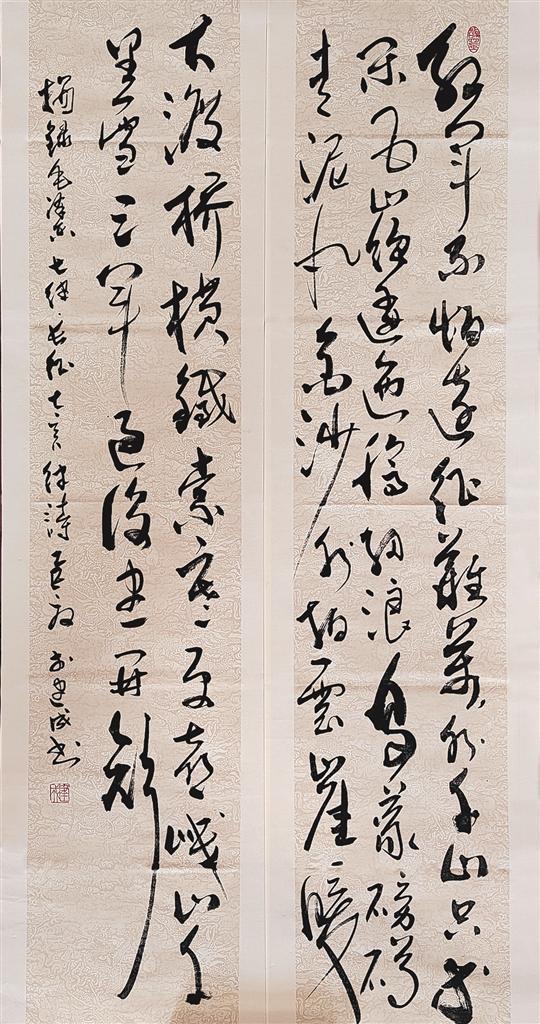 红军不怕远征難萬水千山只等
闲五岭逶迤腾细浪乌蒙磅礴
走泥丸金沙水拍雲崖暖
大渡桥横鐵索寒更喜岷山千
里雪三军过後尽开颜
摘錄毛澤東七律·长征七言律詩 建成书